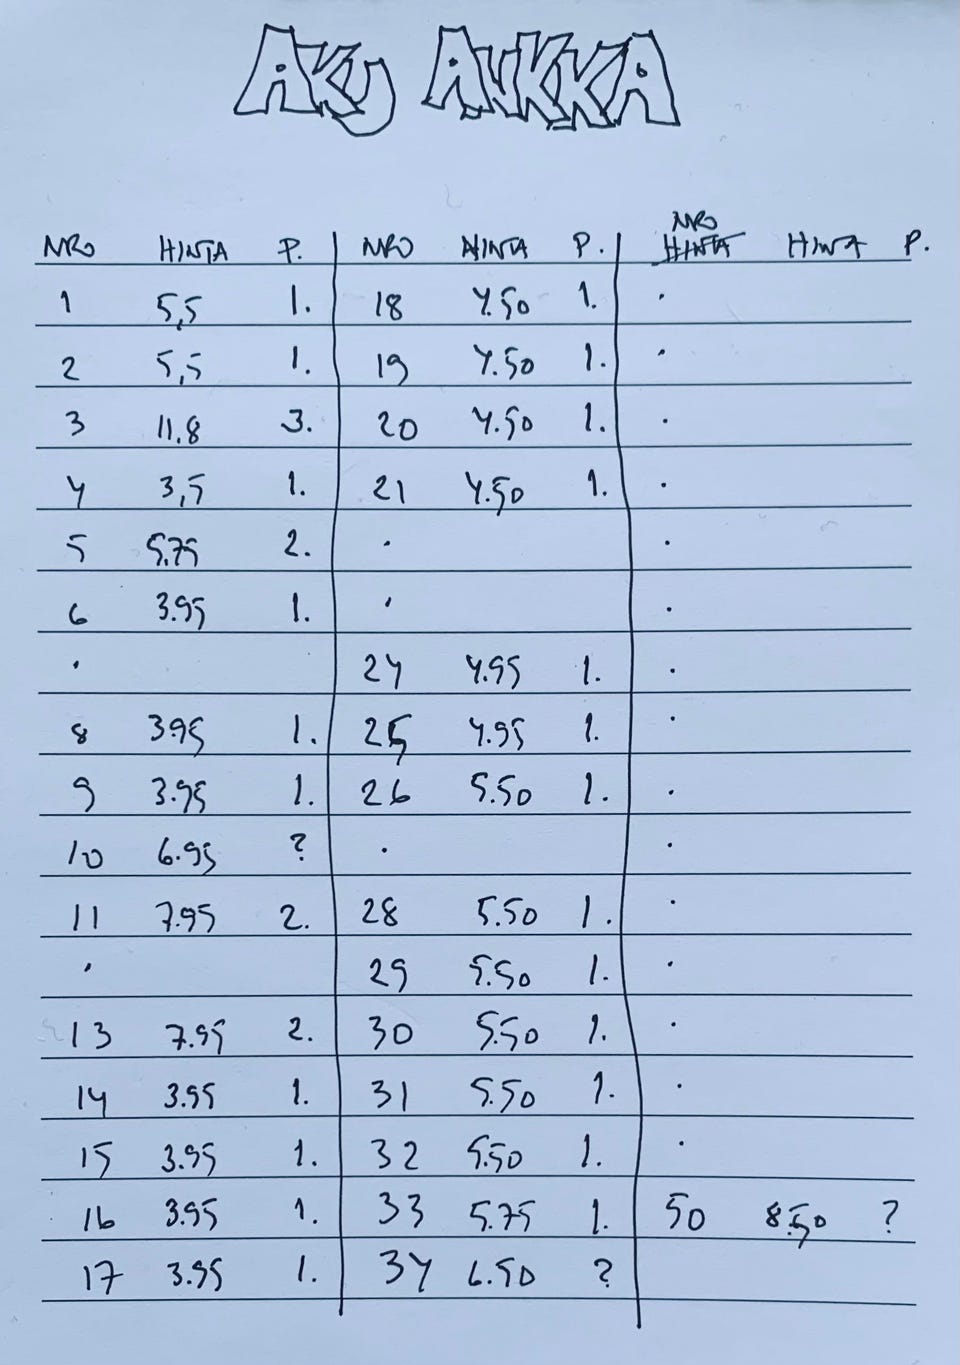 AKU ANKKA
NRO HINTA P. NRO HINTA P. NRO HINTA HINTA P.
1 5,5 1. 18 4.50 1. .
2 5,5 1. 19 4.50 1. .
3 11,8 3. 20 4.50 1. .
4 3,5 1. 21 4.50 1. .
5 5.75 2. . .
6 3.95 1. . .
. 24 4.95 1. .
8 3.95 1. 25 4.95 1. .
9 3.95 1. 26 5.50 1. .
10 6.95 ? . .
11 7.95 2. 28 5.50 1. .
. 29 5.50 1. .
13 7.95 2. 30 5.50 1. .
14 3.95 1. 31 5.50 1. .
15 3.95 1. 32 5.50 1. .
16 3.95 1. 33 5.75 1. 50 8.50 ?
17 3.95 1. 34 6.50 ?